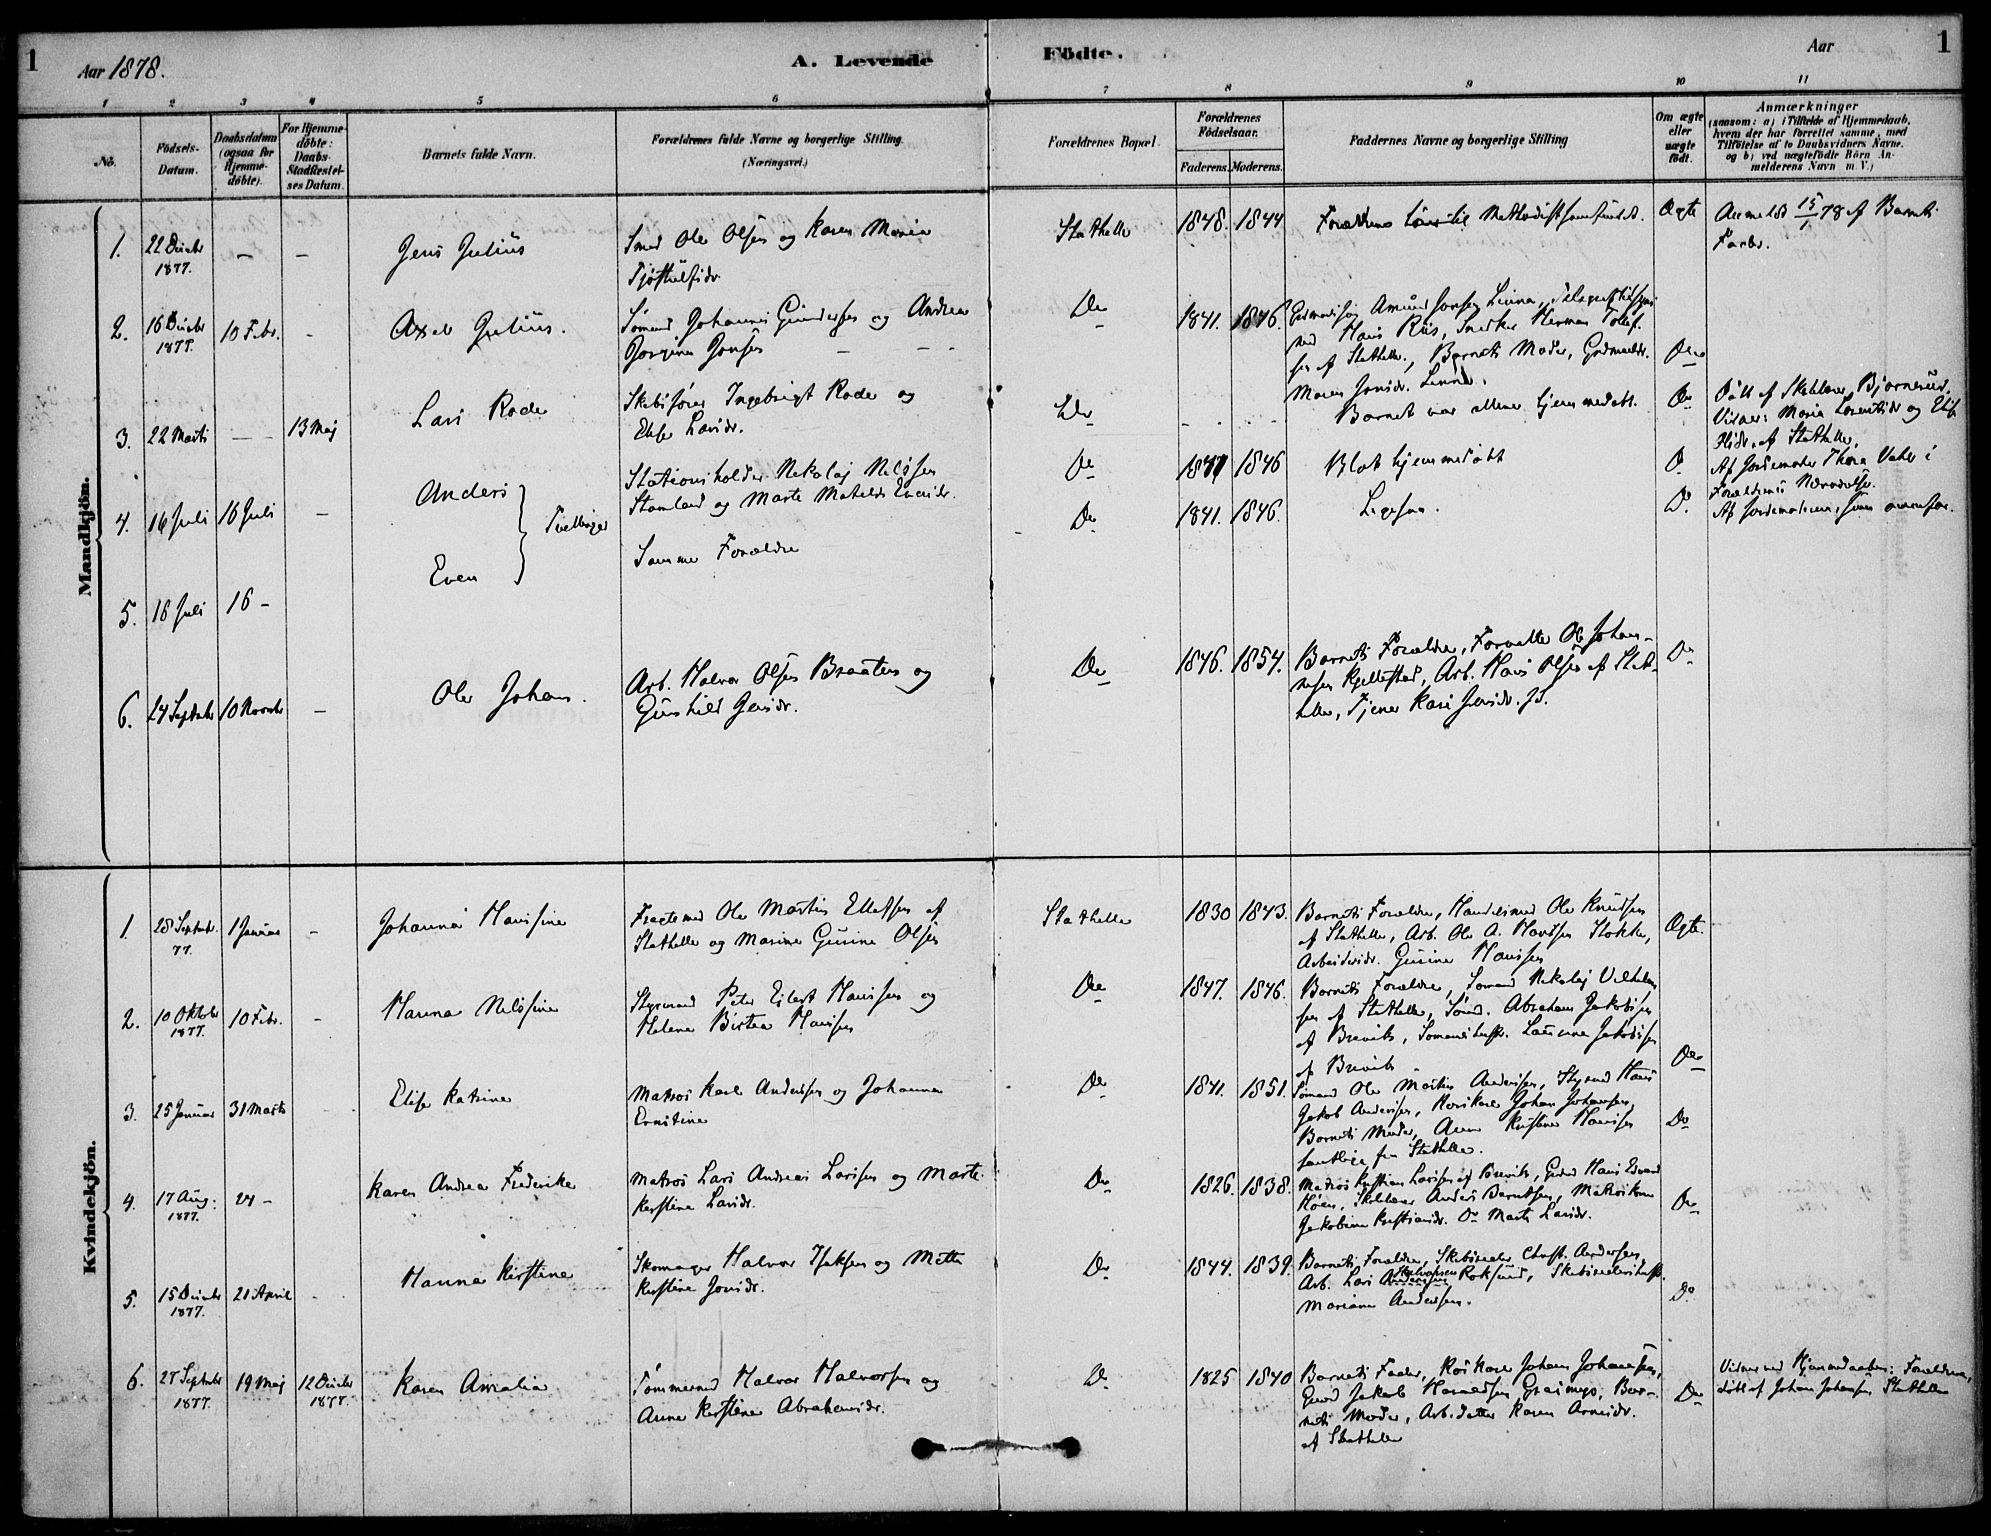 1
Aar 1878.
A. Levende
Födte.
Aar
1
1 2 3 4 5 6 7 8 9 10 11
No.
Födsels-
Datum.
Daabsdatum
(ogsaa for
Hjemme-
döbte).
For Hjemme-
döbte:
Daabs-
Stadfæstel-
ses Datum.
Barnets fulde Navn.
Forældrenes fulde Navne og borgerlige Stilling.
(Næringsvei.)
Forældrenes Bopæl.
Forældrenes
Födselsaar.
Faderens. Moderens.
Faddernes Navne og borgerlige Stilling
Om ægte
eller
uægte
födt.
Anmærkninger
(saasom: a) i Tilfælde af Hjemmedaab,
hvem der har forrettet samme, med
Tilföielse af to Daabsvidners Navne.
og b) ved uægtefödte Börn An-
melderens Navn m. V.)
Mandkjön.
1.
22 Decbr
1877.
-
-
Jens Julius
Smed Ole Olsen og Karen Maria
Stathelle
1848. 1844
Forældrene Methodistsamfundet.
Ægte
Anmeldt 15/1 78 af Barnets
Fader.
2.
16 Decbr
1877.
10 Febr.
-
Axel Julius.
Sømand Johannes Gundersen og Andrea
Jorgine Jonsen
Do
1841. 1846.
med Hans Riis, Snedker Herman Tollef-
sen af Stathelle, Barnets Moder,
Maren Jensdr. Linna.
Do
3.
22 Marts
-
13 Maj
Lars Rode
Skibsfører Ingebrigt Rode og
Elise Larsdr.
Do
Barnet var allene hjemmedøbt.
Do
Døbt af Skibhver Bjørnerud.
Vidner: Maria Lorentsdr og Elise
af Stathelle.
4.
16 Juli
16 Juli
-
Anders
Tvillinger
Stationsholder Nikolaj Nilssen
Stamland og Marte Matelde Evensdr.
Do
1841 1846
Blot hjemmedøbt
Do
Af Jordemoder Thora Vater i
Forældrenes Nærværelse.
5.
16 Juli
16 -
Even
Samme Forældre
Do
1841. 1846.
Ligesaa.
Do.
Af Jordemoderen, som ovenfor.
6.
24 Septbr
10 Novbr
-
Ole Johan.
Arb. Halvor Olsen Braaten og
Gunhild Jensdr.
Do
1846. 1854.
Barnets Forældre, Forvalter Ole Johan-
nesen Kjellestad, Arb. Hans Olsen af Stat-
helle, Tjener Kari Jensdr. JS.
Do
Kvindekjön.
1.
28 Septbr.
77.
1 Januar
-
Johanna Hansine
Fragtemand Ole Martin Ellefsen af
Stathelle og Marine Gurine Olsen
Stathelle
1830 1843.
Barnets Forældre, Handelsmand Ole Knudsen
af Stathelle, Arb. Ole A. Hansen Stokke,
Arbeidersdr. Gurine Hansen
Ægte.
2.
10 Oktbr
1877.
10 Febr.
-
Hanna Nilssine
Styrmand Peter Eilert Hansen og
Helene Birtea Hansen
Do
1847. 1846.
Barnets Forældre, Sømand Nikolaj Vilhelm-
sen af Stathelle, Sømd. Abraham Jakobsen
af Brevik, Sømandshustr. Laurine Jakobsen
af Brevik
Do
3.
25 Januar
31 Marts
Elise Katrine
Matros Karl Andersen og Johanna
Ernstine
Do
1841. 1851.
Sømand Ole Martin Andersen, Styrmd Hans
Jakob Andersen, Johan Johansen,
Barnets Moder, Anne Kirstine Hansen
samtlige fra Stathelle.
Do
4.
17 Aug.
1877.
24 -
Karen Andrea Frederike
Matros Lars Andreas Larssen og Marte
Kerstine Larsdr.
Do
1826. 1838.
Matros Kristian Larssen af Brevik, Hans Edvard
Anders Berntsen, Matroskone
Jakobine Kristiansdr. Do Marte Larsdr.
Do
5.
15 Decbr
1877.
21 April
-
Hanna Kirstine
Skomager Halvor Isaksen og Mette
Kerstine Jonsdr.
Do
1844. 1839.
Barnets Forældre, Christ. Andersen,
Arb. Lars Roksund,
Mariane Andersen.
Do
6.
27 Septbr
1877.
19 Maj
12 Decbr
1877.
Karen Amalia
Tømmermd Halvor Halvorsen og
Anne Kerstine Abrahamsdr.
Do
1825 1840
Barnets Fader, Johan Johansen,
Jakob Haraldsen Grasmyr, Bar-
nets Moder, Arb.datter Karen Arnesdr.
af Stathelle
Do
Vidner ved Hjemmedaaben: Forældrene,
døbt af Johan Johansen, Stathelle